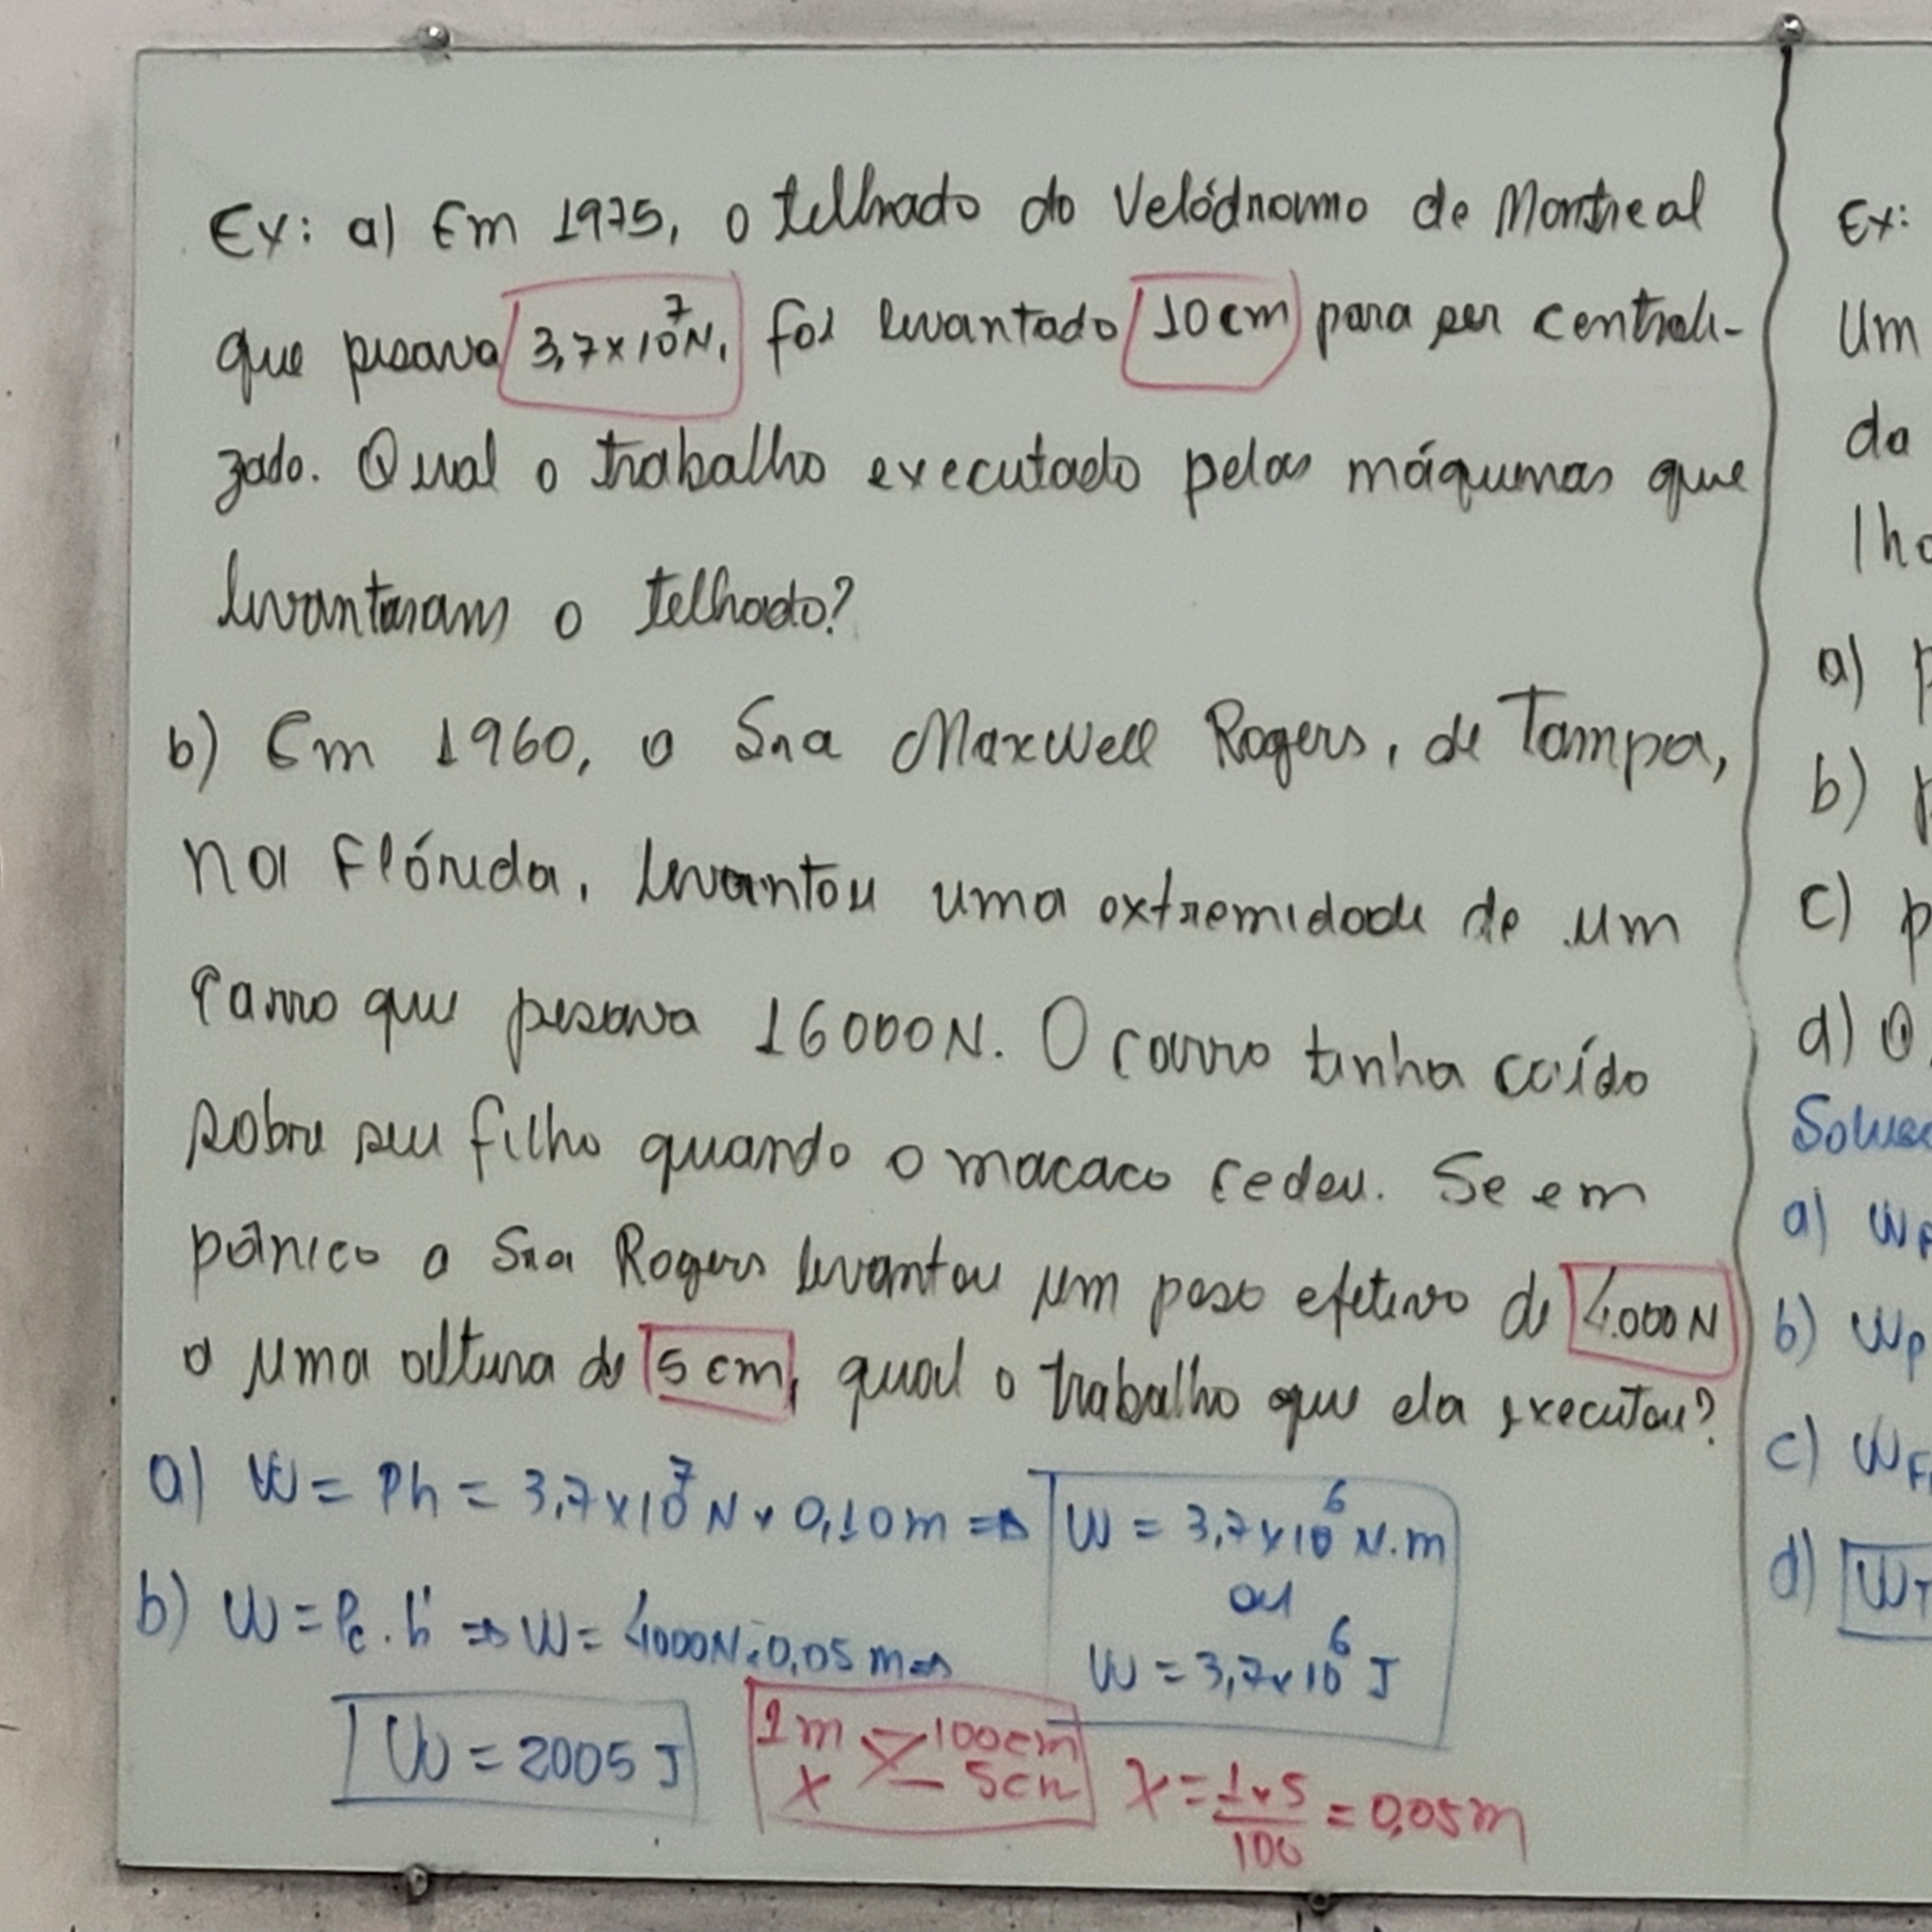 Ex: a) Em 1975, o telhado do Velódromo de Montreal
que pesava 3,7x10⁷N, foi levantado 10 cm para ser centrali-
zado. Qual o trabalho executado pelas máquinas que
levantaram o telhado?
b) Em 1960, a Sra Maxwell Rogers, de Tampa,
na Flórida, levantou uma extremidade de um
carro que pesava 16000N. O carro tinha caído
sobre seu filho quando o macaco cedeu. Se em
pânico a Sra Rogers levantou um peso efetivo de 4.000 N
a uma altura de 5 cm, qual o trabalho que ela executou?
a) W = Ph = 3,7x10⁷ N x 0,10m => W = 3,7x10⁶ N.m
ou
W = 3,7x10⁶ J
b) W = Pc . h => W = 4000N.0,05 m=>
W = 2005 J
1m 100cm
x 5cm
X = 1x5/100 = 0,05m
Ex:
Um
da
a)
b)
c) p
d) O
a) W
b) WP
c) WF
d) W